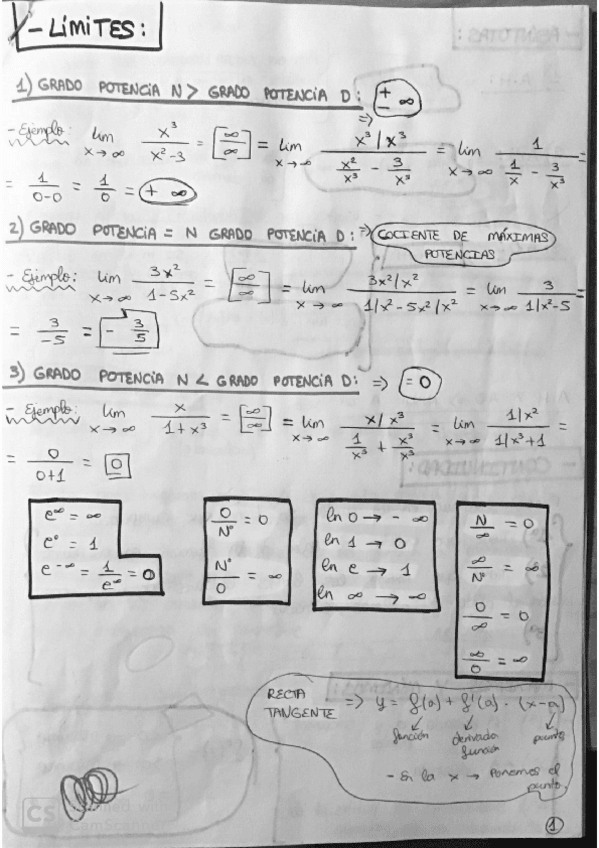 - LÍMITES:
1) GRADO POTENCIA N > GRADO POTENCIA D: ⇒ ± ∞
- Ejemplo: lim x→∞ x³/(x²-3) = [∞/∞] = lim x→∞ (x³/x³)/(x²/x³ - 3/x³) = lim x→∞ 1/(1/x - 3/x³) =
= 1/(0-0) = 1/0 = + ∞
2) GRADO POTENCIA = N GRADO POTENCIA D: ⇒ COCIENTE DE MÁXIMAS
POTENCIAS
- Ejemplo: lim x→∞ 3x²/(1-5x²) = [∞/∞] = lim x→∞ (3x²/x²)/(1/x² - 5x²/x²) = lim x→∞ 3/(1/x²-5) =
= 3/-5 = - 3/5
3) GRADO POTENCIA N < GRADO POTENCIA D: ⇒ = 0
- Ejemplo: lim x→∞ x/(1+x³) = [∞/∞] = lim x→∞ (x/x³)/(1/x³ + x³/x³) = lim x→∞ (1/x²)/(1/x³+1) =
= 0/(0+1) = 0
e^∞ = ∞
e⁰ = 1
e^-∞ = 1/e^∞ = 0
0/Nº = 0
Nº/0 = ∞
ln 0 → - ∞
ln 1 → 0
ln e → 1
ln ∞ → ∞
N/∞ = 0
∞/Nº = ∞
0/∞ = 0
∞/0 = ∞
RECTA
TANGENTE ⇒ y = f(a) + f'(a) · (x-a)
función derivada función punto
- En la x → ponemos el
punto
1
CS
CamScanner